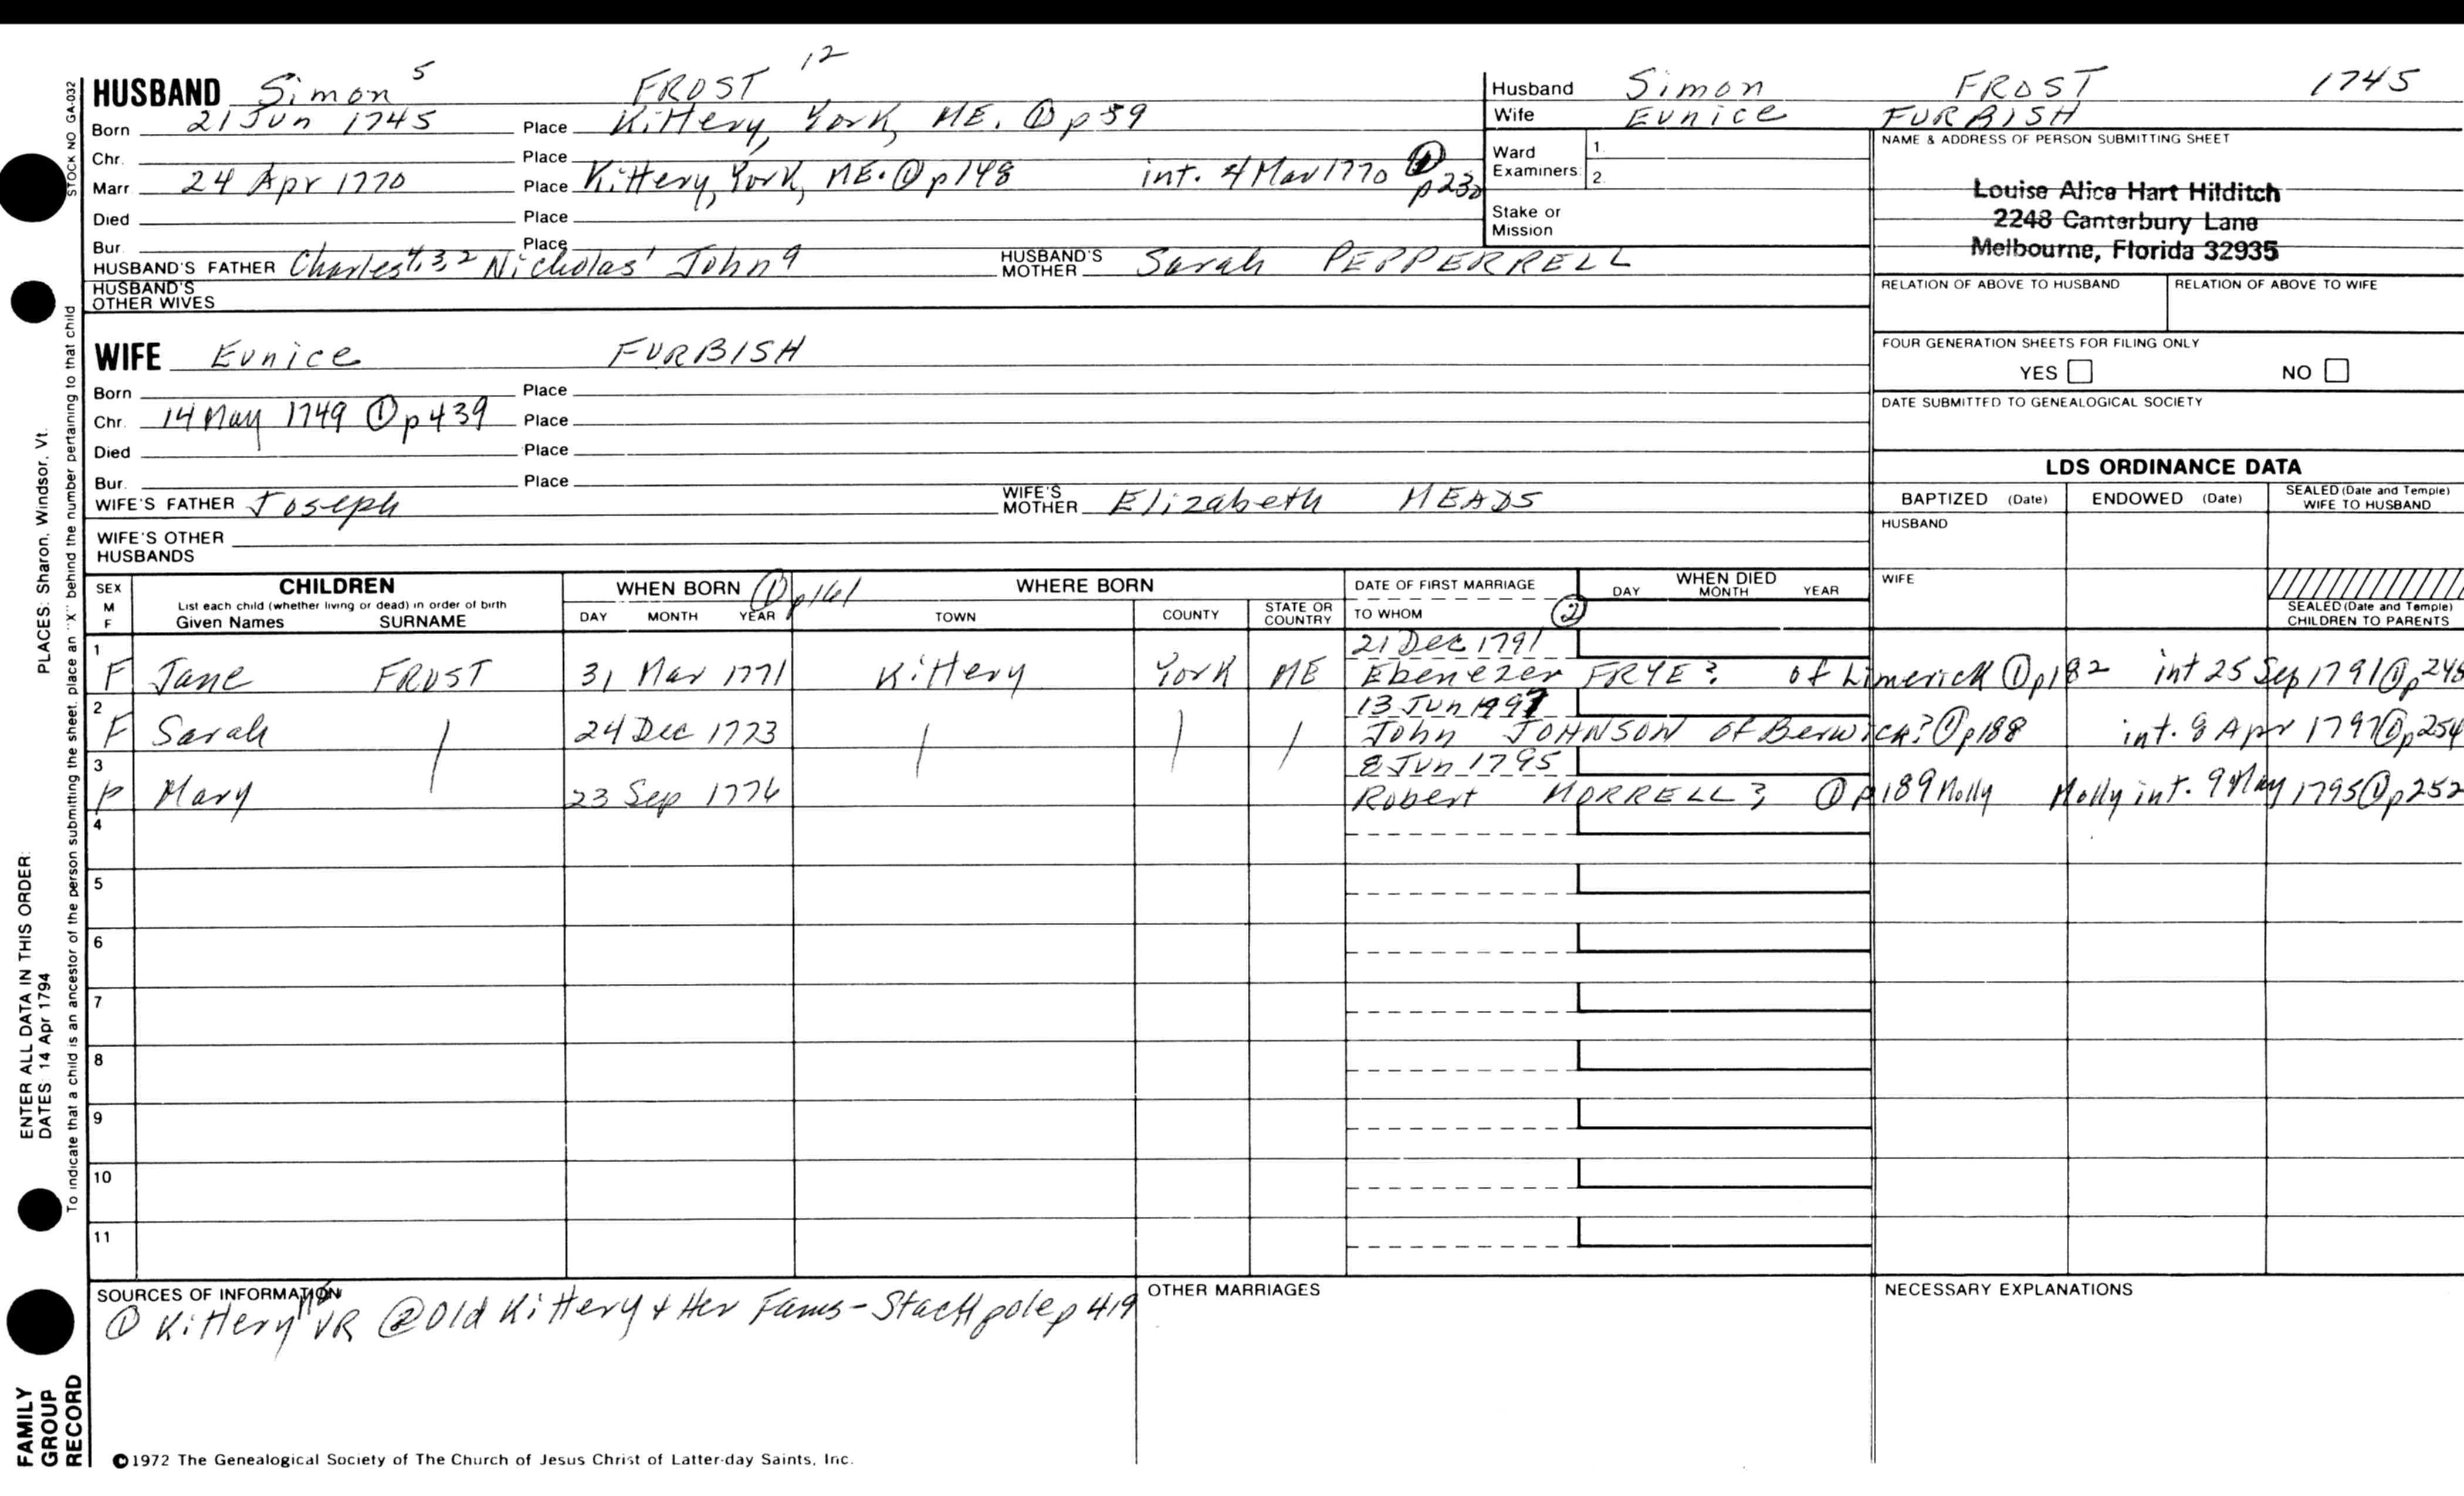 HUSBAND Simon 5 FROST 12
Born 21 Jun 1745 Place Kittery, York, ME. ① p 59
Chr. Place
Marr 24 Apr 1770 Place Kittery, York, ME. ① p 148 int. 4 Mar 1770 ① p 230
Died Place
Bur. Place
HUSBAND'S FATHER Charles 4, 3, 2 Nicholas 1 John 9 HUSBAND'S MOTHER Sarah PEPPERRELL
HUSBAND'S OTHER WIVES
Husband Simon FROST 1745
Wife Eunice FURBISH
Ward Examiners: 1. 2.
Stake or Mission
NAME & ADDRESS OF PERSON SUBMITTING SHEET
Louise Alice Hart Hilditch
2248 Canterbury Lane
Melbourne, Florida 32935
RELATION OF ABOVE TO HUSBAND RELATION OF ABOVE TO WIFE
FOUR GENERATION SHEETS FOR FILING ONLY
YES NO
DATE SUBMITTED TO GENEALOGICAL SOCIETY
WIFE Eunice FURBISH
Born Place
Chr. 14 May 1749 ① p 439 Place
Died Place
Bur. Place
WIFE'S FATHER Joseph WIFE'S MOTHER Elizabeth MEADS
WIFE'S OTHER HUSBANDS
LDS ORDINANCE DATA
BAPTIZED (Date) ENDOWED (Date) SEALED (Date and Temple) WIFE TO HUSBAND
HUSBAND
WIFE
SEALED (Date and Temple) CHILDREN TO PARENTS
SEX M F
CHILDREN
List each child (whether living or dead) in order of birth
Given Names SURNAME
WHEN BORN ① p 161
DAY MONTH YEAR
WHERE BORN
TOWN COUNTY STATE OR COUNTRY
DATE OF FIRST MARRIAGE
TO WHOM ②
WHEN DIED
DAY MONTH YEAR
21 Dec 1791
1 F Jane FROST 31 Mar 1771 Kittery York ME Ebenezer FRYE? of Limerick ① p 182 int 25 Sep 1791 ① p 245
13 Jun 1997
2 F Sarah | 24 Dec 1773 | | | John JOHNSON of Berwick? ① p 188 int. 8 Apr 1797 ① p 254
8 Jun 1795
3 F Mary 23 Sep 1776 Robert MORRELL? ① p 189 Molly Molly int. 9 May 1795 ① p 252
4
5
6
7
8
9
10
11
SOURCES OF INFORMATION
① Kittery ME VR ② Old Kittery & Her Fams - Stackpole p 419
OTHER MARRIAGES
NECESSARY EXPLANATIONS
©1972 The Genealogical Society of The Church of Jesus Christ of Latter-day Saints, Inc.
STOCK NO GA-032
To indicate that a child is an ancestor of the person submitting the sheet, place an "X" behind the number pertaining to that child
ENTER ALL DATA IN THIS ORDER:
DATES 14 Apr 1794 PLACES: Sharon, Windsor, Vt.
FAMILY
GROUP
RECORD